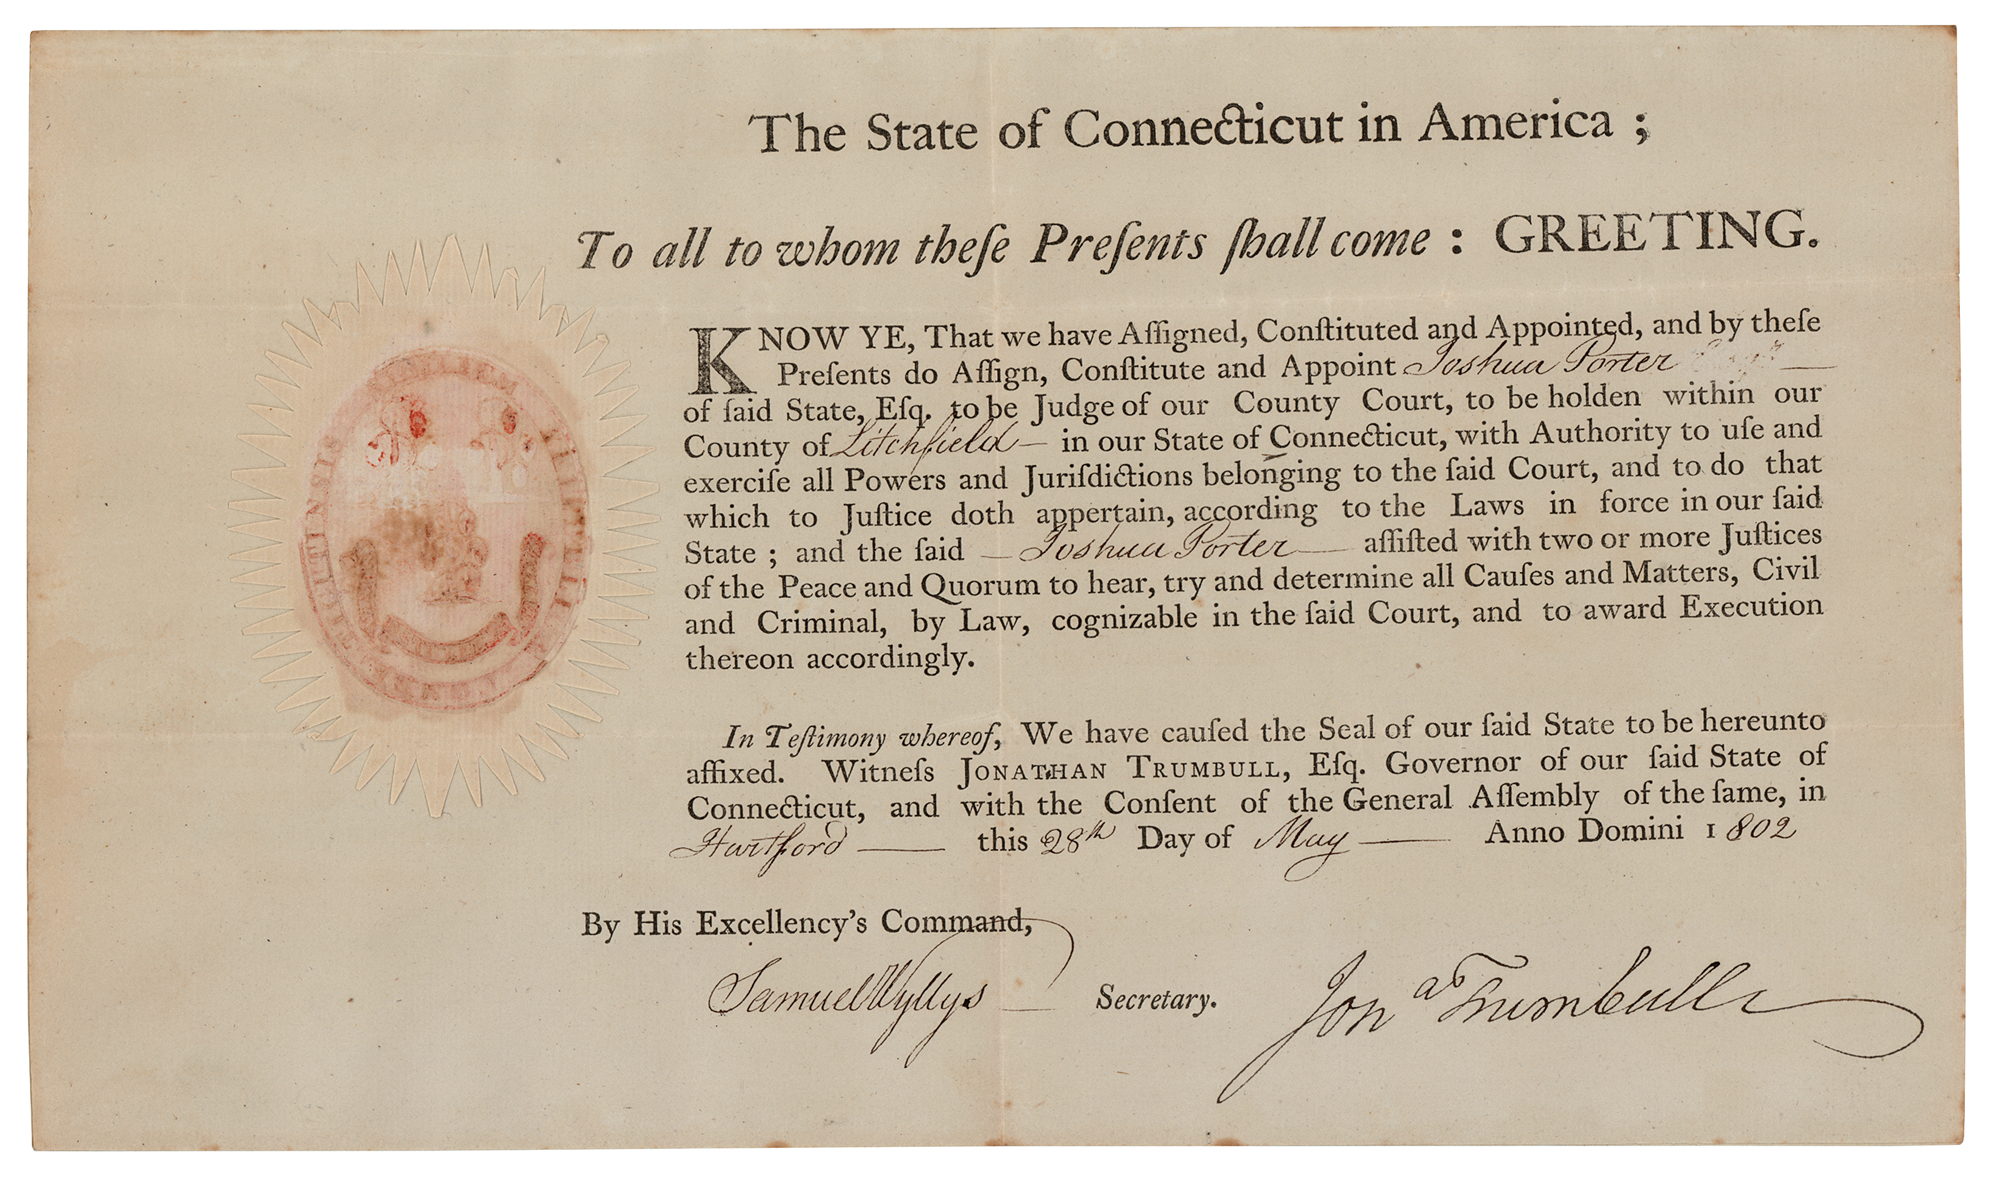 The State of Connecticut in America ;
To all to whom theſe Preſents ſhall come : GREETING.
KNOW YE, That we have Aſſigned, Conſtituted and Appointed, and by theſe
Preſents do Aſſign, Conſtitute and Appoint Joshua Porter
of ſaid State, Eſq. to be Judge of our County Court, to be holden within our
County of Litchfield — in our State of Connecticut, with Authority to uſe and
exerciſe all Powers and Juriſdictions belonging to the ſaid Court, and to do that
which to Juſtice doth appertain, according to the Laws in force in our ſaid
State ; and the ſaid — Joshua Porter — aſſiſted with two or more Juſtices
of the Peace and Quorum to hear, try and determine all Cauſes and Matters, Civil
and Criminal, by Law, cognizable in the ſaid Court, and to award Execution
thereon accordingly.
In Teſtimony whereof, We have cauſed the Seal of our ſaid State to be hereunto
affixed. Witneſs JONATHAN TRUMBULL, Eſq. Governor of our ſaid State of
Connecticut, and with the Conſent of the General Aſſembly of the ſame, in
Hartford — this 28th Day of May — Anno Domini 1802
By His Excellency's Command,
Samuel Wyllys — Secretary. Jonas Trumbull